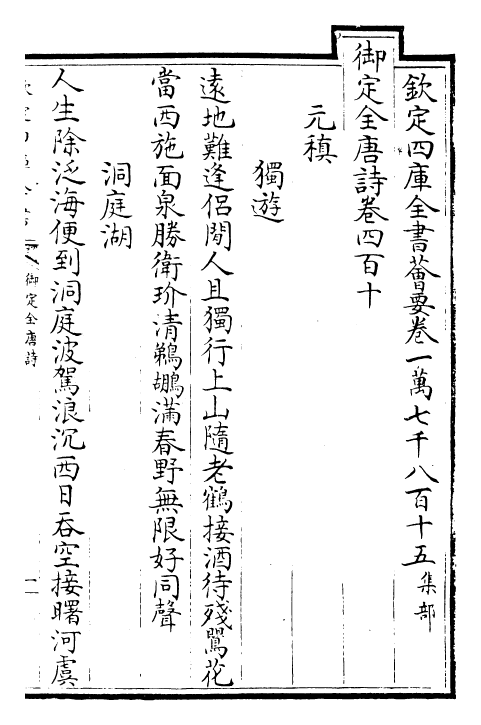 欽定四庫全書薈要卷一萬七千八百十五集部
御定全唐詩卷四百十
元稹
獨遊
遠地難逢侶閒人且獨行上山隨老鶴接酒待殘鶯花
當西施面泉勝衛玠清鵜鶘滿春野無限好同聲
洞庭湖
人生除泛海便到洞庭波駕浪沉西日吞空接曙河虞
御定全唐詩